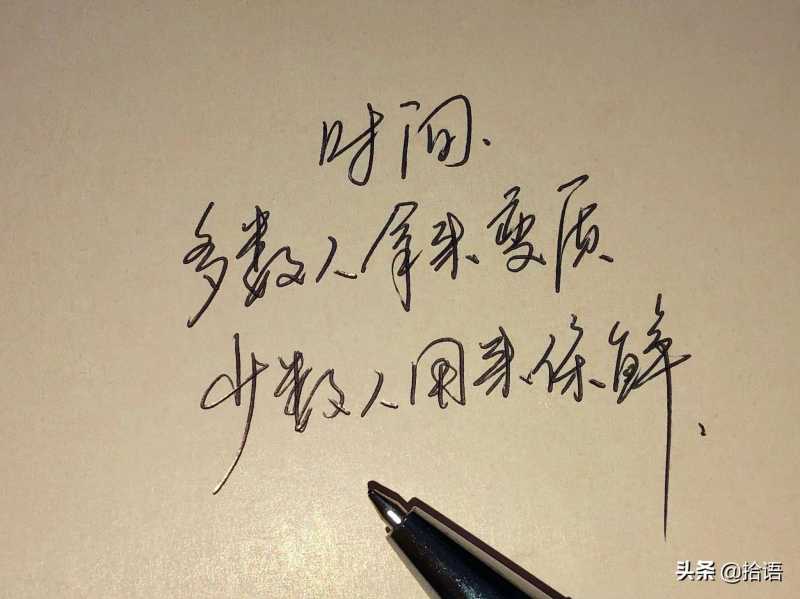 时间、
多数人拿来变质
少数人用来保鲜、
头条 @拾语